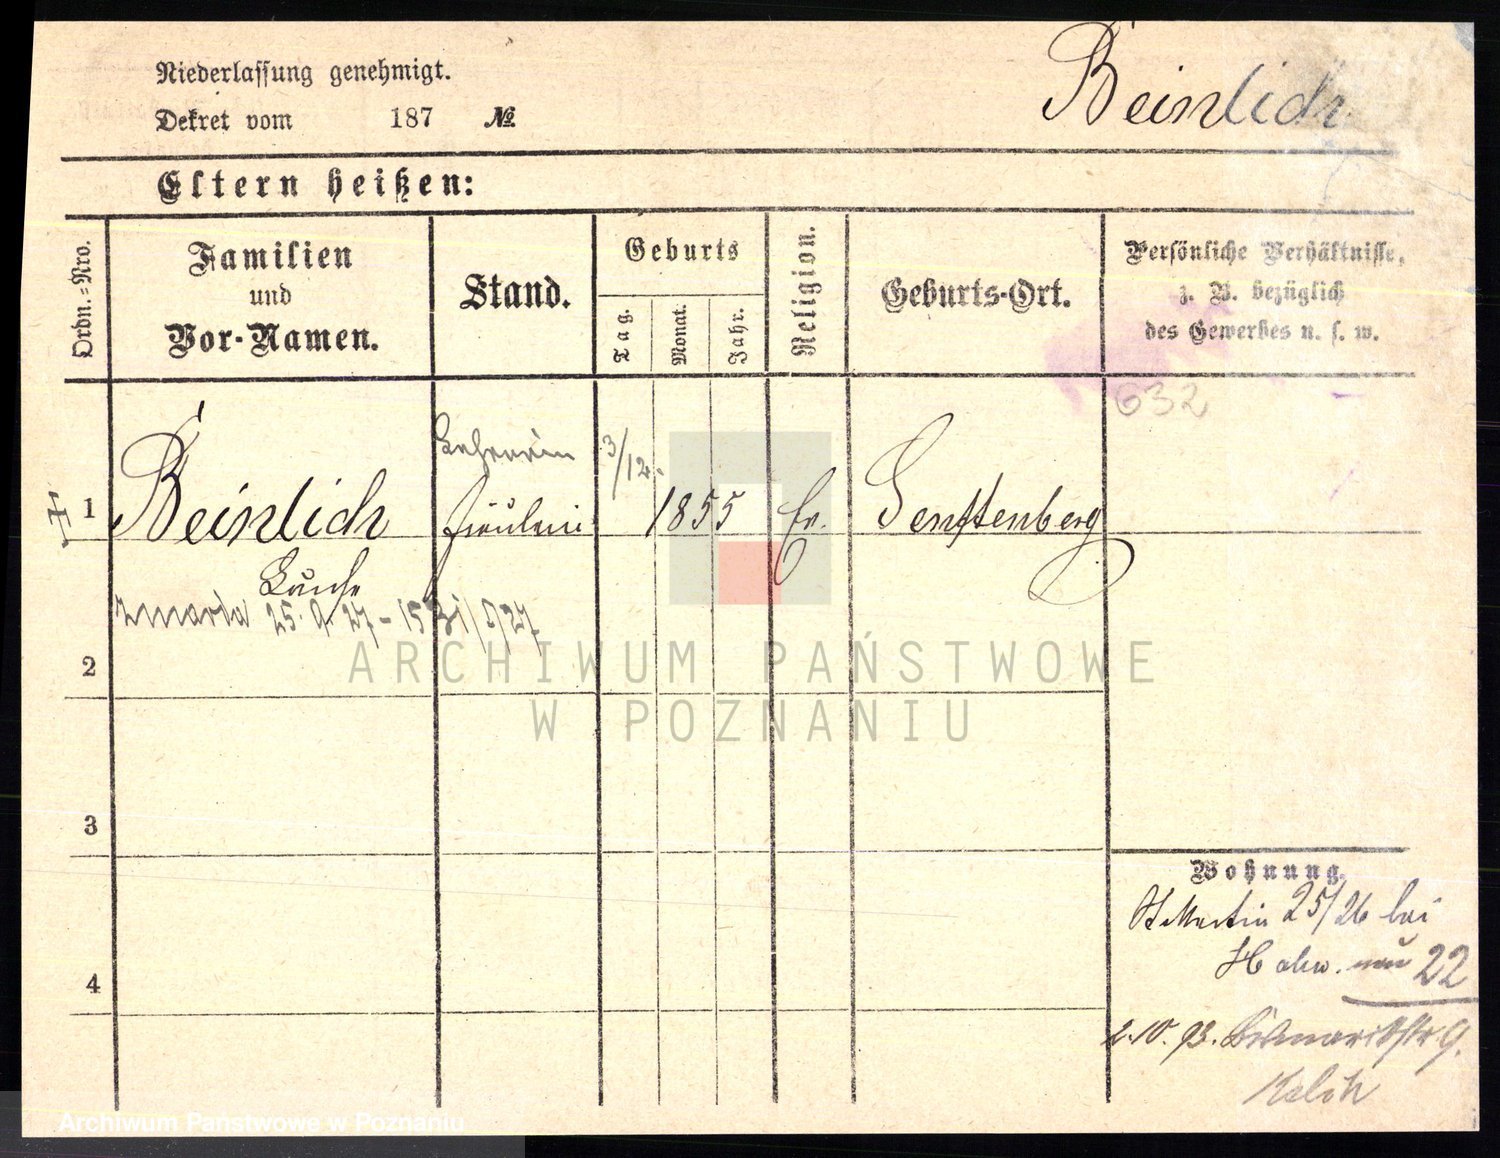 Niederlassung genehmigt.
Beinlich
Dekret vom 187 №
Eltern heißen:
Ordn.=Nro.
Familien
und
Vor-Namen.
Stand.
Geburts
Tag.
Monat.
Jahr.
Religion.
Geburts-Ort.
Persönliche Verhältnisse,
z. B. bezüglich
des Gewerbes u. s. w.
632
Lehrerin
3/12.
1 Beinlich Fräulein 1855 Ev. Senftenberg
zmarła 25.9.27 - 15
2
ARCHIWUM PAŃSTWOWE
W POZNANIU
3
Wohnung.
St Martin 25/26 bei
22
4
2.10.93. Bismarckstr 9.
Archiwum Państwowe w Poznaniu